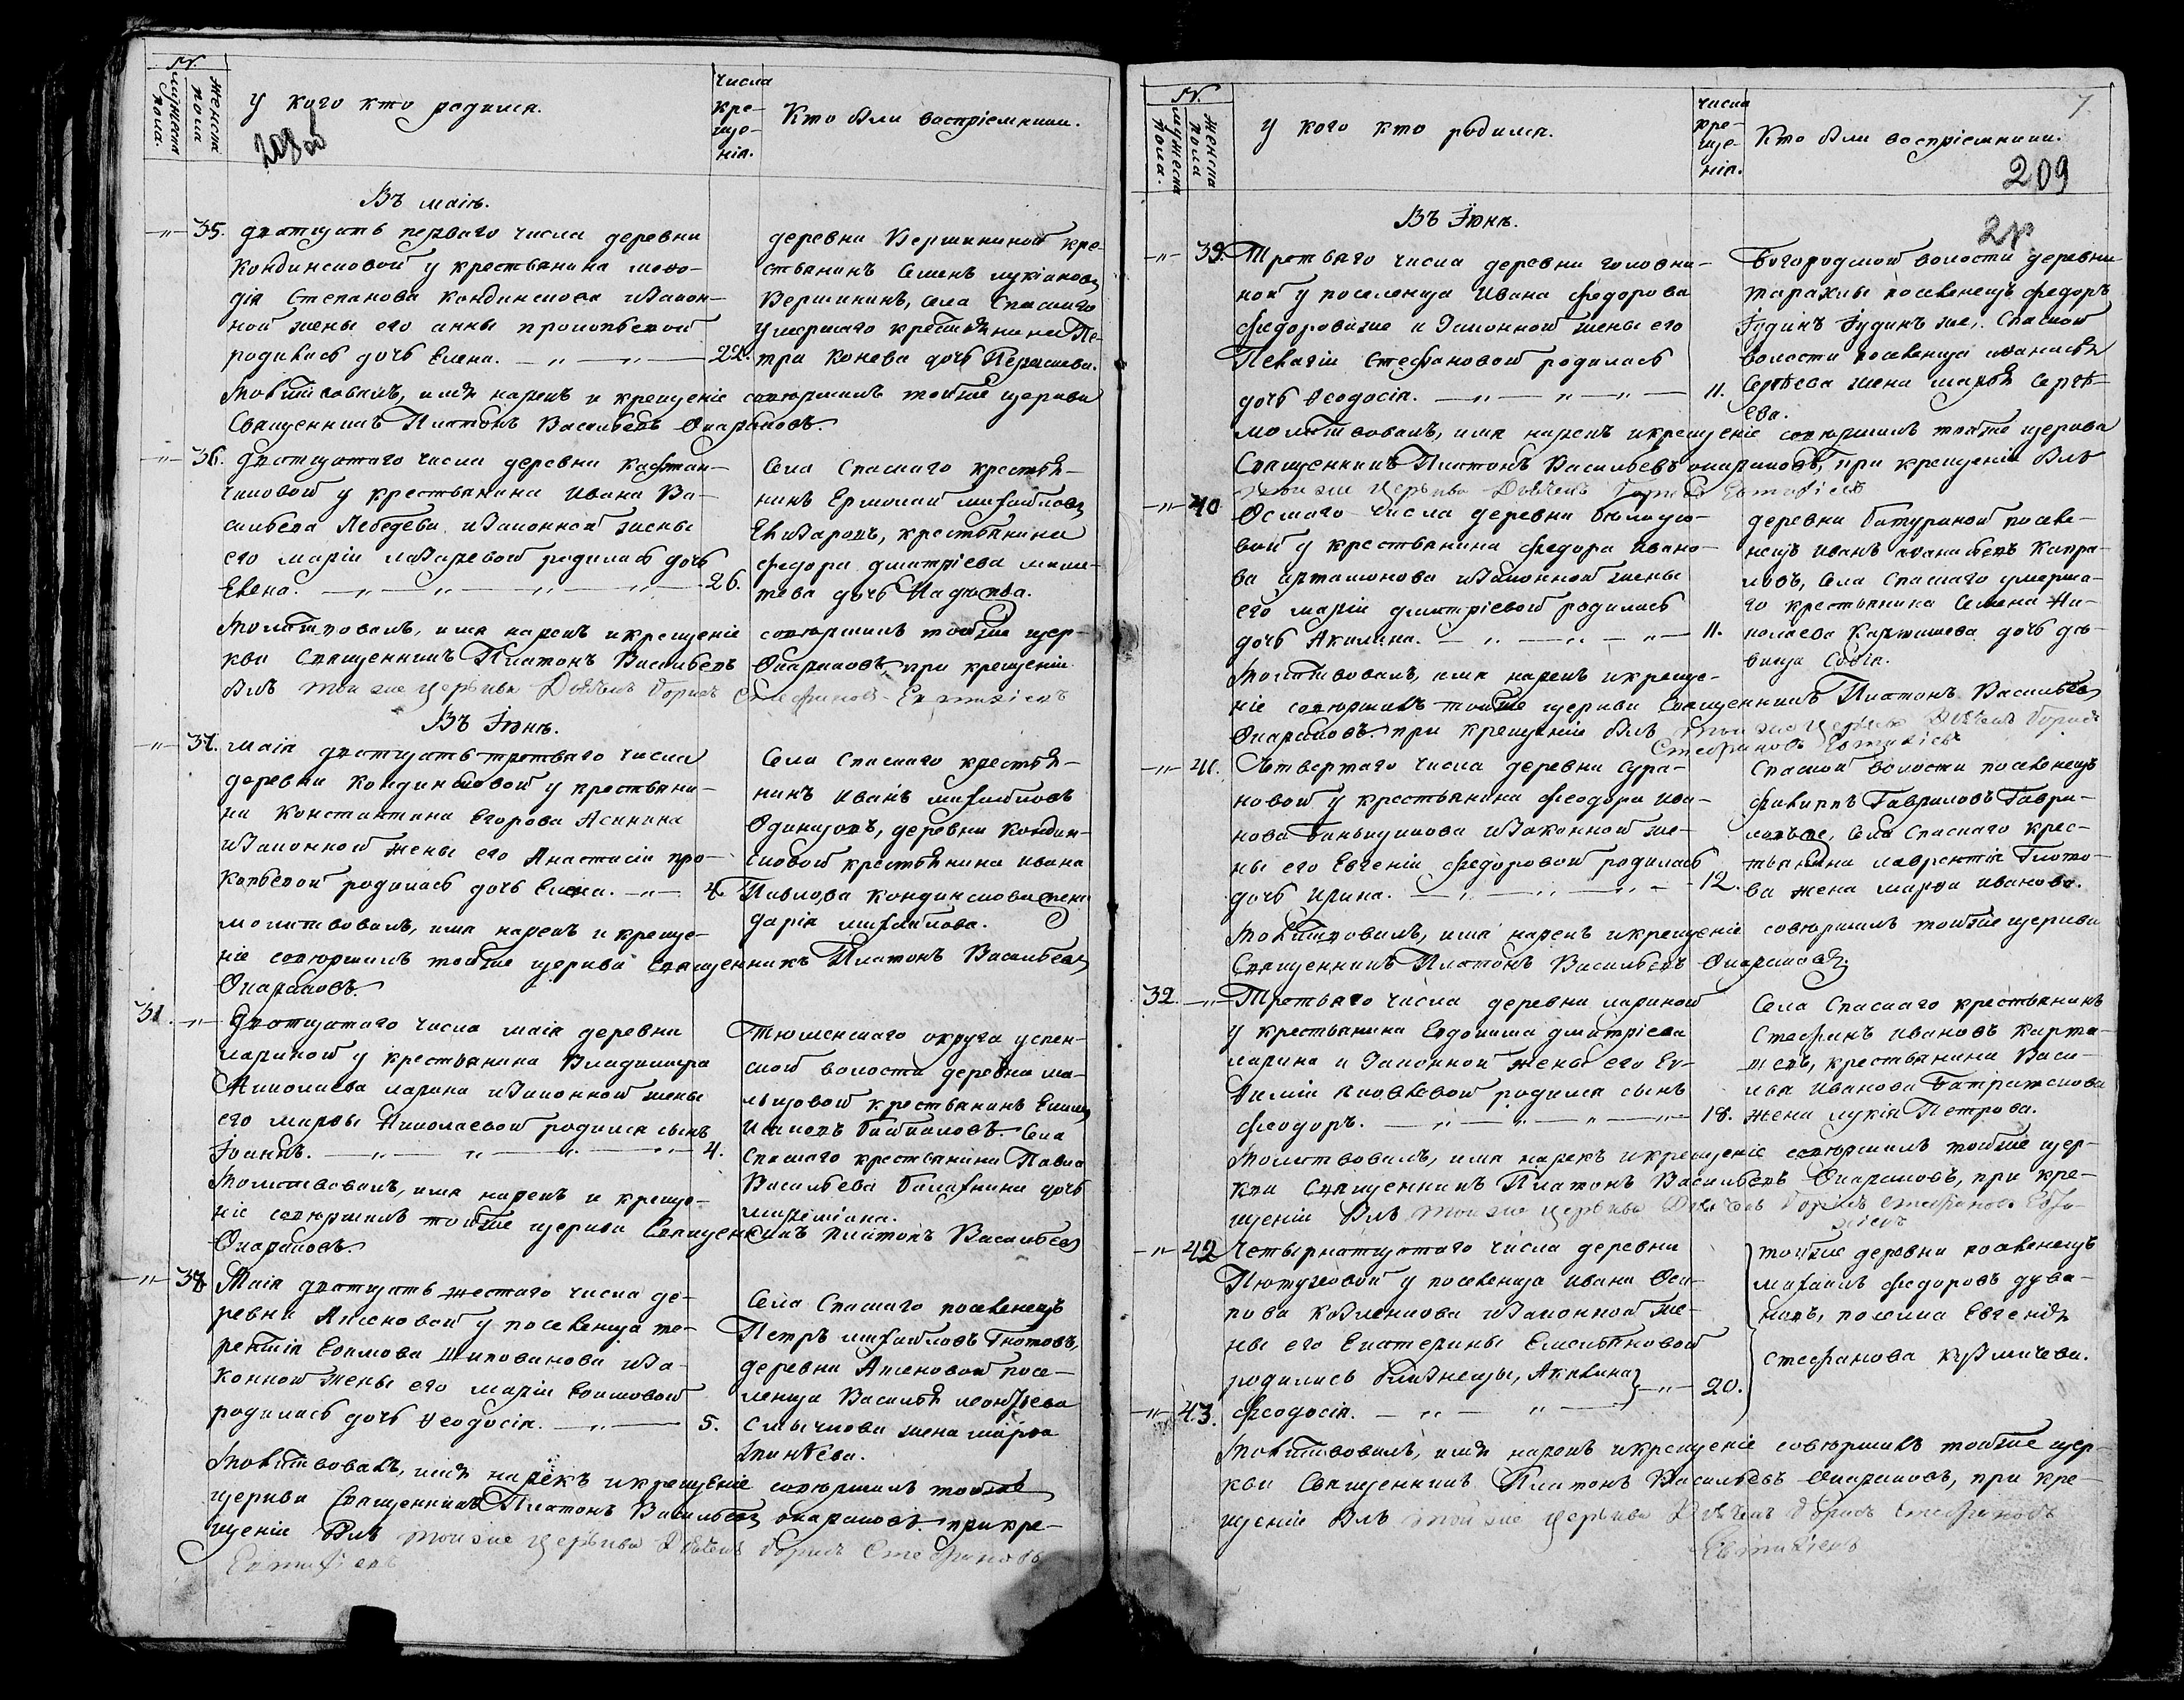 №.
мужеска пола.
женска пола
У кого кто родился.
208 об
числа
кре-
ще-
нія.
Кто были воспріемники.
Въ маіѣ.
-"- 35. дватцать перваго числа деревни
Кондинсковой у крестьянина меѳо-
дія Степанова Кондинскова изакон-
ной жены его анны прокопьевой
родилась дочь Елена. — " — " — 22.
деревни Вершининой кре-
стьянинъ Семенъ лукіановъ
Вершининъ, села Спаскаго
умершаго крестьянина Пе-
тра Конева дочь Парасковья.
Молитвовалъ, имя нарекъ и крещеніе совершилъ тойже церкви
Священникъ Платонъ Васильевъ
-"- 36. дватцатаго числа деревни кафтан-
чиковой у крестьянина Ивана Ва-
сильева Лебедева изаконной жены
его маріи лазаревой родилась дочь
Елена. — " — " — " — " — 26.
Села Спаскаго крестья-
нинъ Ермолай михайловъ
Елизаровъ, крестьянина
федора дмитріева
дочь Надѣжда.
Молитвовалъ, имя нарекъ икрещеніе совершилъ тойже цер-
кви Священникъ Платонъ Васильевъ при крещеніи
былъ тойже церкви Дьячекъ Борисъ Стефановъ Евтихіевъ
Въ Іюнѣ.
-"- 37. маія дватцать третьяго числа
деревни Кондинсковой у крестьяни-
на Константина Егорова Асинина
изаконной жены его Анастасіи про-
копьевой родилась дочь Елена. — " — 4
Села Спаскаго крестья-
нинъ Иванъ михайловъ
Одинцовъ, деревни Кондин-
сковой крестьянина ивана
Павлова Кондинскова жена
дарія михайлова.
молитвовалъ, имя нарекъ и креще-
ніе совершилъ тойже церкви Священникъ Платонъ Васильевъ
31. -"- Дватцатаго числа маія деревни
лариной у крестьянина Владимира
Николаева ларина изаконной жены
его марѳы Николаевой родился сынъ
Іоаннъ. — " — " — " — " — 4.
Тюменскаго округа успен-
ской волости деревни ма-
льцовой крестьянинъ
Села
Спаскаго крестьянина Павла
Васильева дочь
Молитвовалъ, имя нарекъ и креще-
ніе совершилъ тойже церкви Священникъ Платонъ Васильевъ
-"- 38 Маія дватцать шестаго числа де-
ревни Аксеновой у поселенца те-
рентія Ефимова иза-
конной жены его маріи Ефимовой
родилась дочь Ѳеодосія. — " — 5.
Села Спаскаго поселенецъ
Петръ михайловъ
деревни Аксеновой посе-
ленца Василья
Смычкова жена марѳа
Молитвовалъ, имя нарекъ икрещеніе совершилъ тойже
церкви Священникъ Платонъ Васильевъ при кре-
щеніи былъ тойже церкви Дьячекъ Борисъ Стефановъ
Евтихіевъ
№.
мужеска пола.
женска пола
У кого кто родился.
числа
кре-
ще-
нія.
Кто были воспріемники.
7
209
Въ Іюнѣ.
-"- 39. Третьяго числа деревни головни-
ной у поселенца Ивана федорова
федороваже и Законной жены его
Пелагіи Стефановой родилась
дочь Ѳеодосія. — " — " — " — 11.
Богородской волости деревни
поселенецъ федоръ
Іудинъ Іудинъ же, Спаской
волости поселенца аѳанасья
Сергѣева жена марья Сергѣ-
ева.
молитвовалъ, имя нарекъ икрещеніе совершилъ тойже церкви
Священникъ Платонъ Васильевъ при крещеніи былъ
тойже церкви Дьячекъ Борисъ Евтихіевъ
-"- 40 Осмаго числа деревни
у крестьянина федора Ивано-
ва артамонова изаконной жены
его маріи дмитріевой родилась
дочь Акилина. — " — " — " — 11.
деревни батуриной поселе-
нецъ Иванъ аѳанасьевъ Капра-
ловъ, села Спаскаго умерша-
го крестьянина Семена Ни-
колаева Карташева дочь дѣ-
вица Софія.
Молитвовалъ, имя нарекъ икреще-
ніе совершилъ тойже церкви Священникъ Платонъ Васильевъ
при крещеніи былъ тойже церкви Дьячекъ Борисъ
Стефановъ Евтихіевъ
-"- 41. Четвертаго числа деревни сура-
новой у крестьянина феодора ива-
нова изаконной же-
ны его Евгеніи федоровой родилась
дочь Ирина. — " — " — " — 12.
Спаской волости поселенецъ
филиппъ Гавриловъ Гаври-
ловъже, села Спаскаго крес-
тьянина лаврентія
жена марѳа Иванова.
Молитвовалъ, имя нарекъ икрещеніе совершилъ тойже церкви
Священникъ Платонъ Васильевъ
32. -"- Третьяго числа деревни лариной
у крестьянина Евдокима дмитріева
ларина и Законной жены его Ев-
фиміи яковлевой родился сынъ
феодоръ. — " — " — " — " — 18.
Села Спаскаго крестьянинъ
Стефанъ Ивановъ Карта-
шевъ, крестьянина Васи-
лья Иванова
жена лукія Петрова.
Молитвовалъ, имя нарекъ икрещеніе совершилъ тойже цер-
кви Священникъ Платонъ Васильевъ при кре-
щеніи былъ тойже церкви Дьячекъ Борисъ Стефановъ Евти-
хіевъ
-"- 42 Четырнатцатаго числа деревни
у поселенца Ивана Оси-
пова изаконной же-
ны его Екатерины
родились близнецы, Акилина
-"- 43. феодосія. — " — " — 20.
тойже деревни поселенецъ
михаилъ федоровъ
Евгенія
стефанова
Молитвовалъ, имя нарекъ икрещеніе совершилъ тойже цер-
кви Священникъ Платонъ Васильевъ при кре-
щеніи былъ тойже церкви Дьячекъ Борисъ Стефановъ
Евтихіевъ